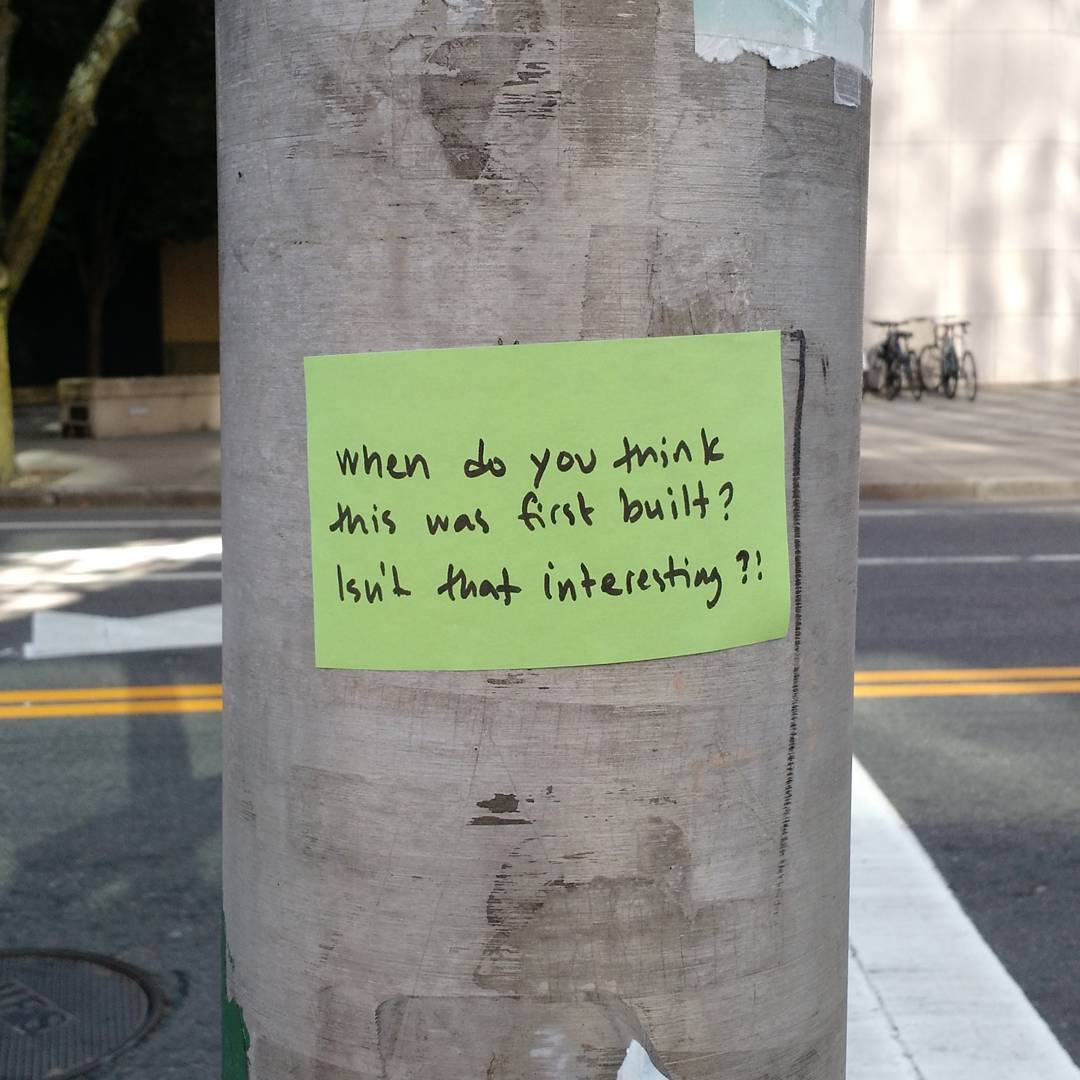 when do you think
this was first built?
Isn't that interesting?!